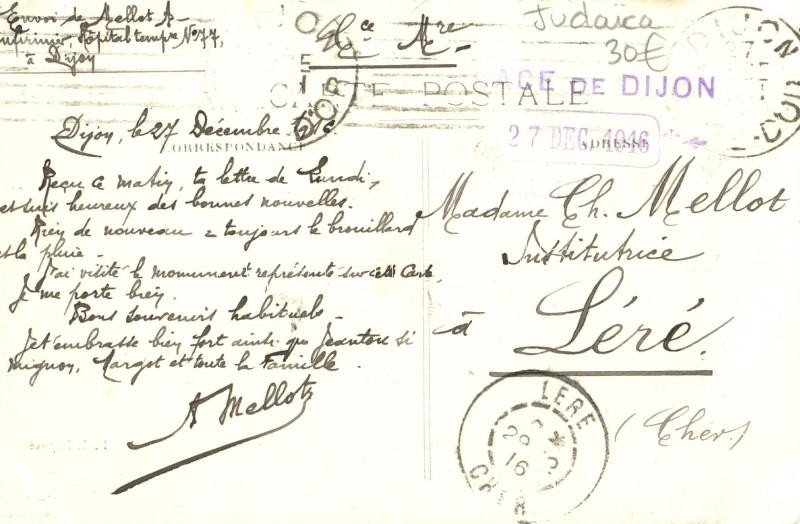 Envoi de Mellot A-
Infirmier, Hôpital tempre No 77,
à Dijon
Judaica
30€
CARTE POSTALE
PLACE DE DIJON
27 DEC. 1916
DIJON
27
CÔTE D'OR
Dijon, le 27 Décembre
CORRESPONDANCE
ADRESSE
Reçu ce matin, ta lettre de Lundi,
et suis heureux des bonnes nouvelles.
Rien de nouveau = toujours le brouillard
et la pluie -
J'ai visité le monument représenté sur cette Carte,
Je me porte bien.
Bons souvenirs habituels -
Je t'embrasse bien fort ainsi que Jeanton si
mignon, Margot et toute la Famille.
A Mellot
Madame Ch. Mellot
Institutrice
à Léré.
(Cher)
LERE
16
CHER